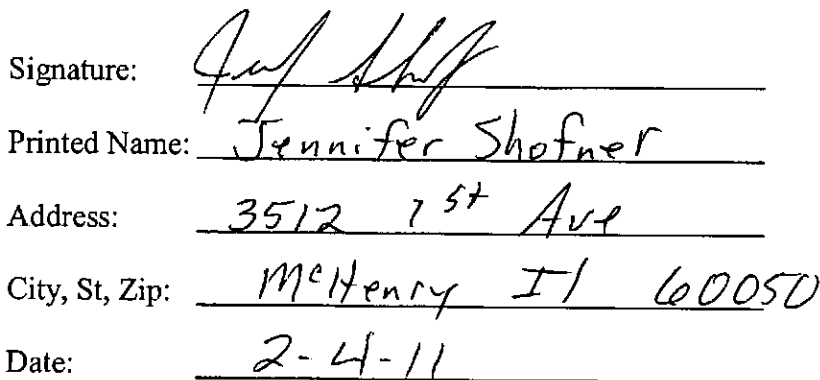 Signature:
Printed Name: Jennifer Shofner
Address: 3512 1st Ave
City, St, Zip: McHenry Il 60050
Date: 2-4-11